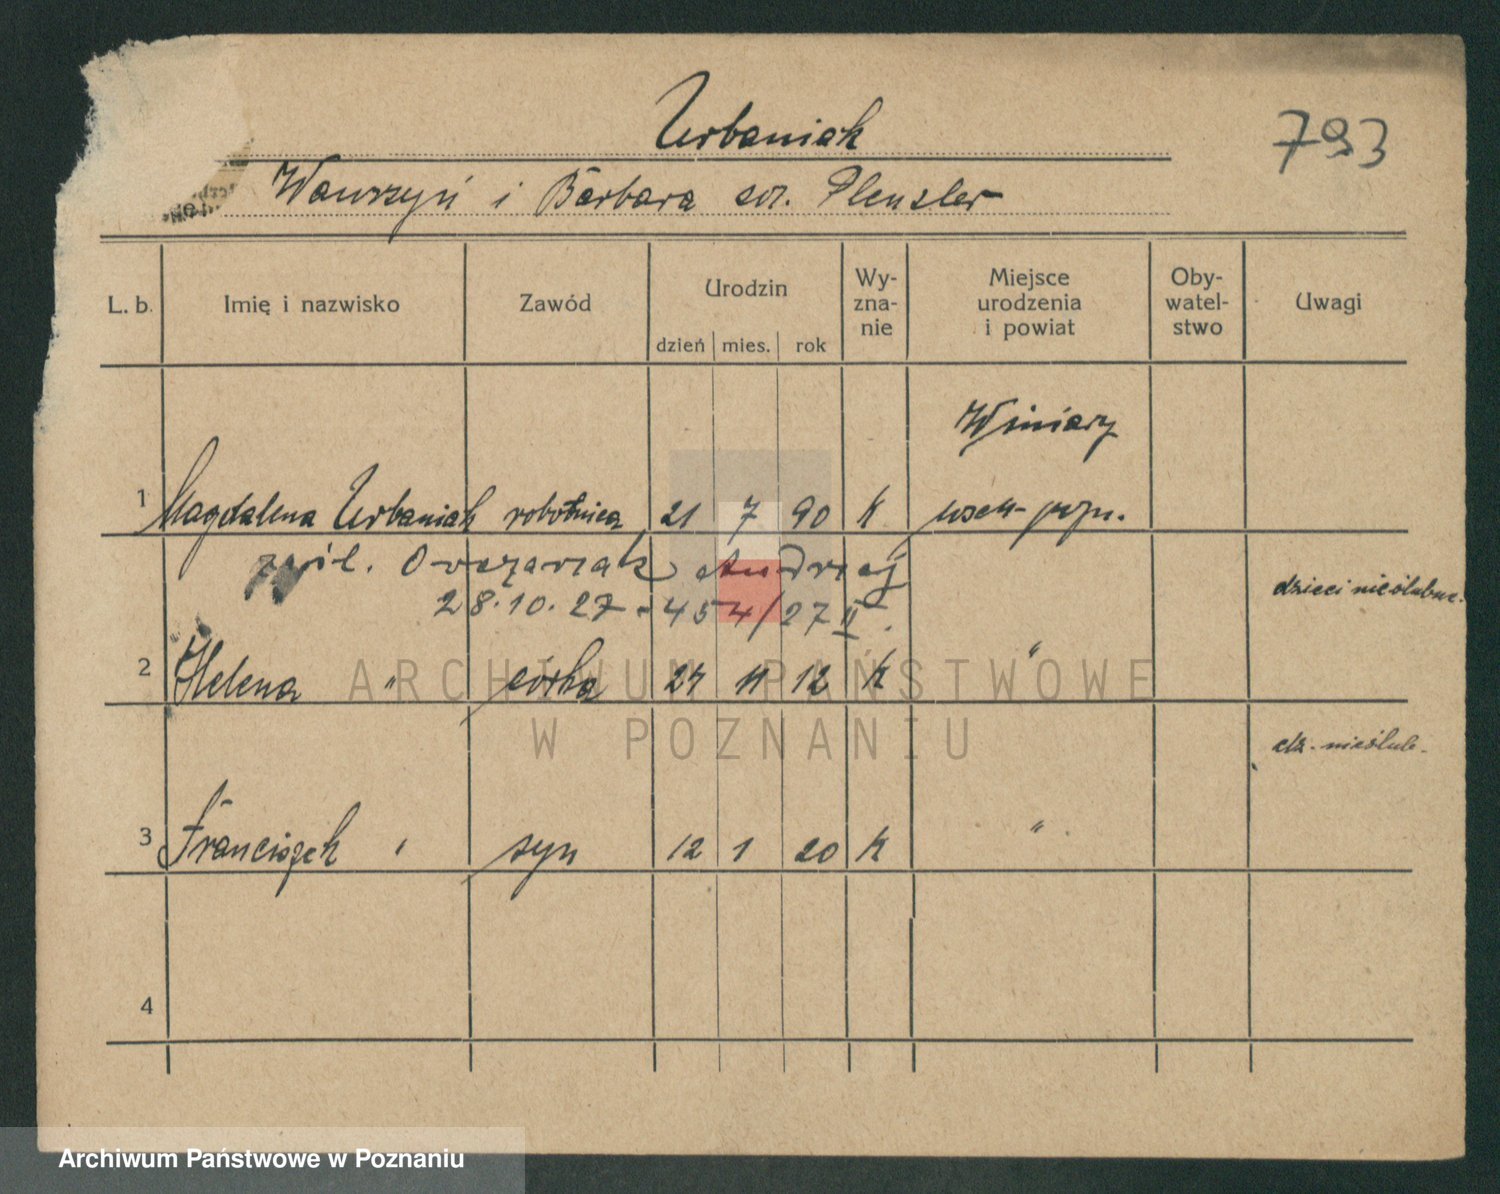 Urbaniak
793
Wawrzyń i Barbara
L. b. Imię i nazwisko Zawód Urodzin dzień mies. rok Wy-zna-nie Miejsce urodzenia i powiat Oby-watel-stwo Uwagi
Winiary
1 Magdalena Urbaniak robotnica 21 7 90 K
zaśl. Owczarzak Andrzej
28.10.27 - 454/27 II.
dzieci nieślubne.
2 Helena " córka 24 11 12 K "
dz. nieślub.
3 Franciszek " syn 12 1 20 K "
4
ARCHIWUM PAŃSTWOWE
W POZNANIU
Archiwum Państwowe w Poznaniu